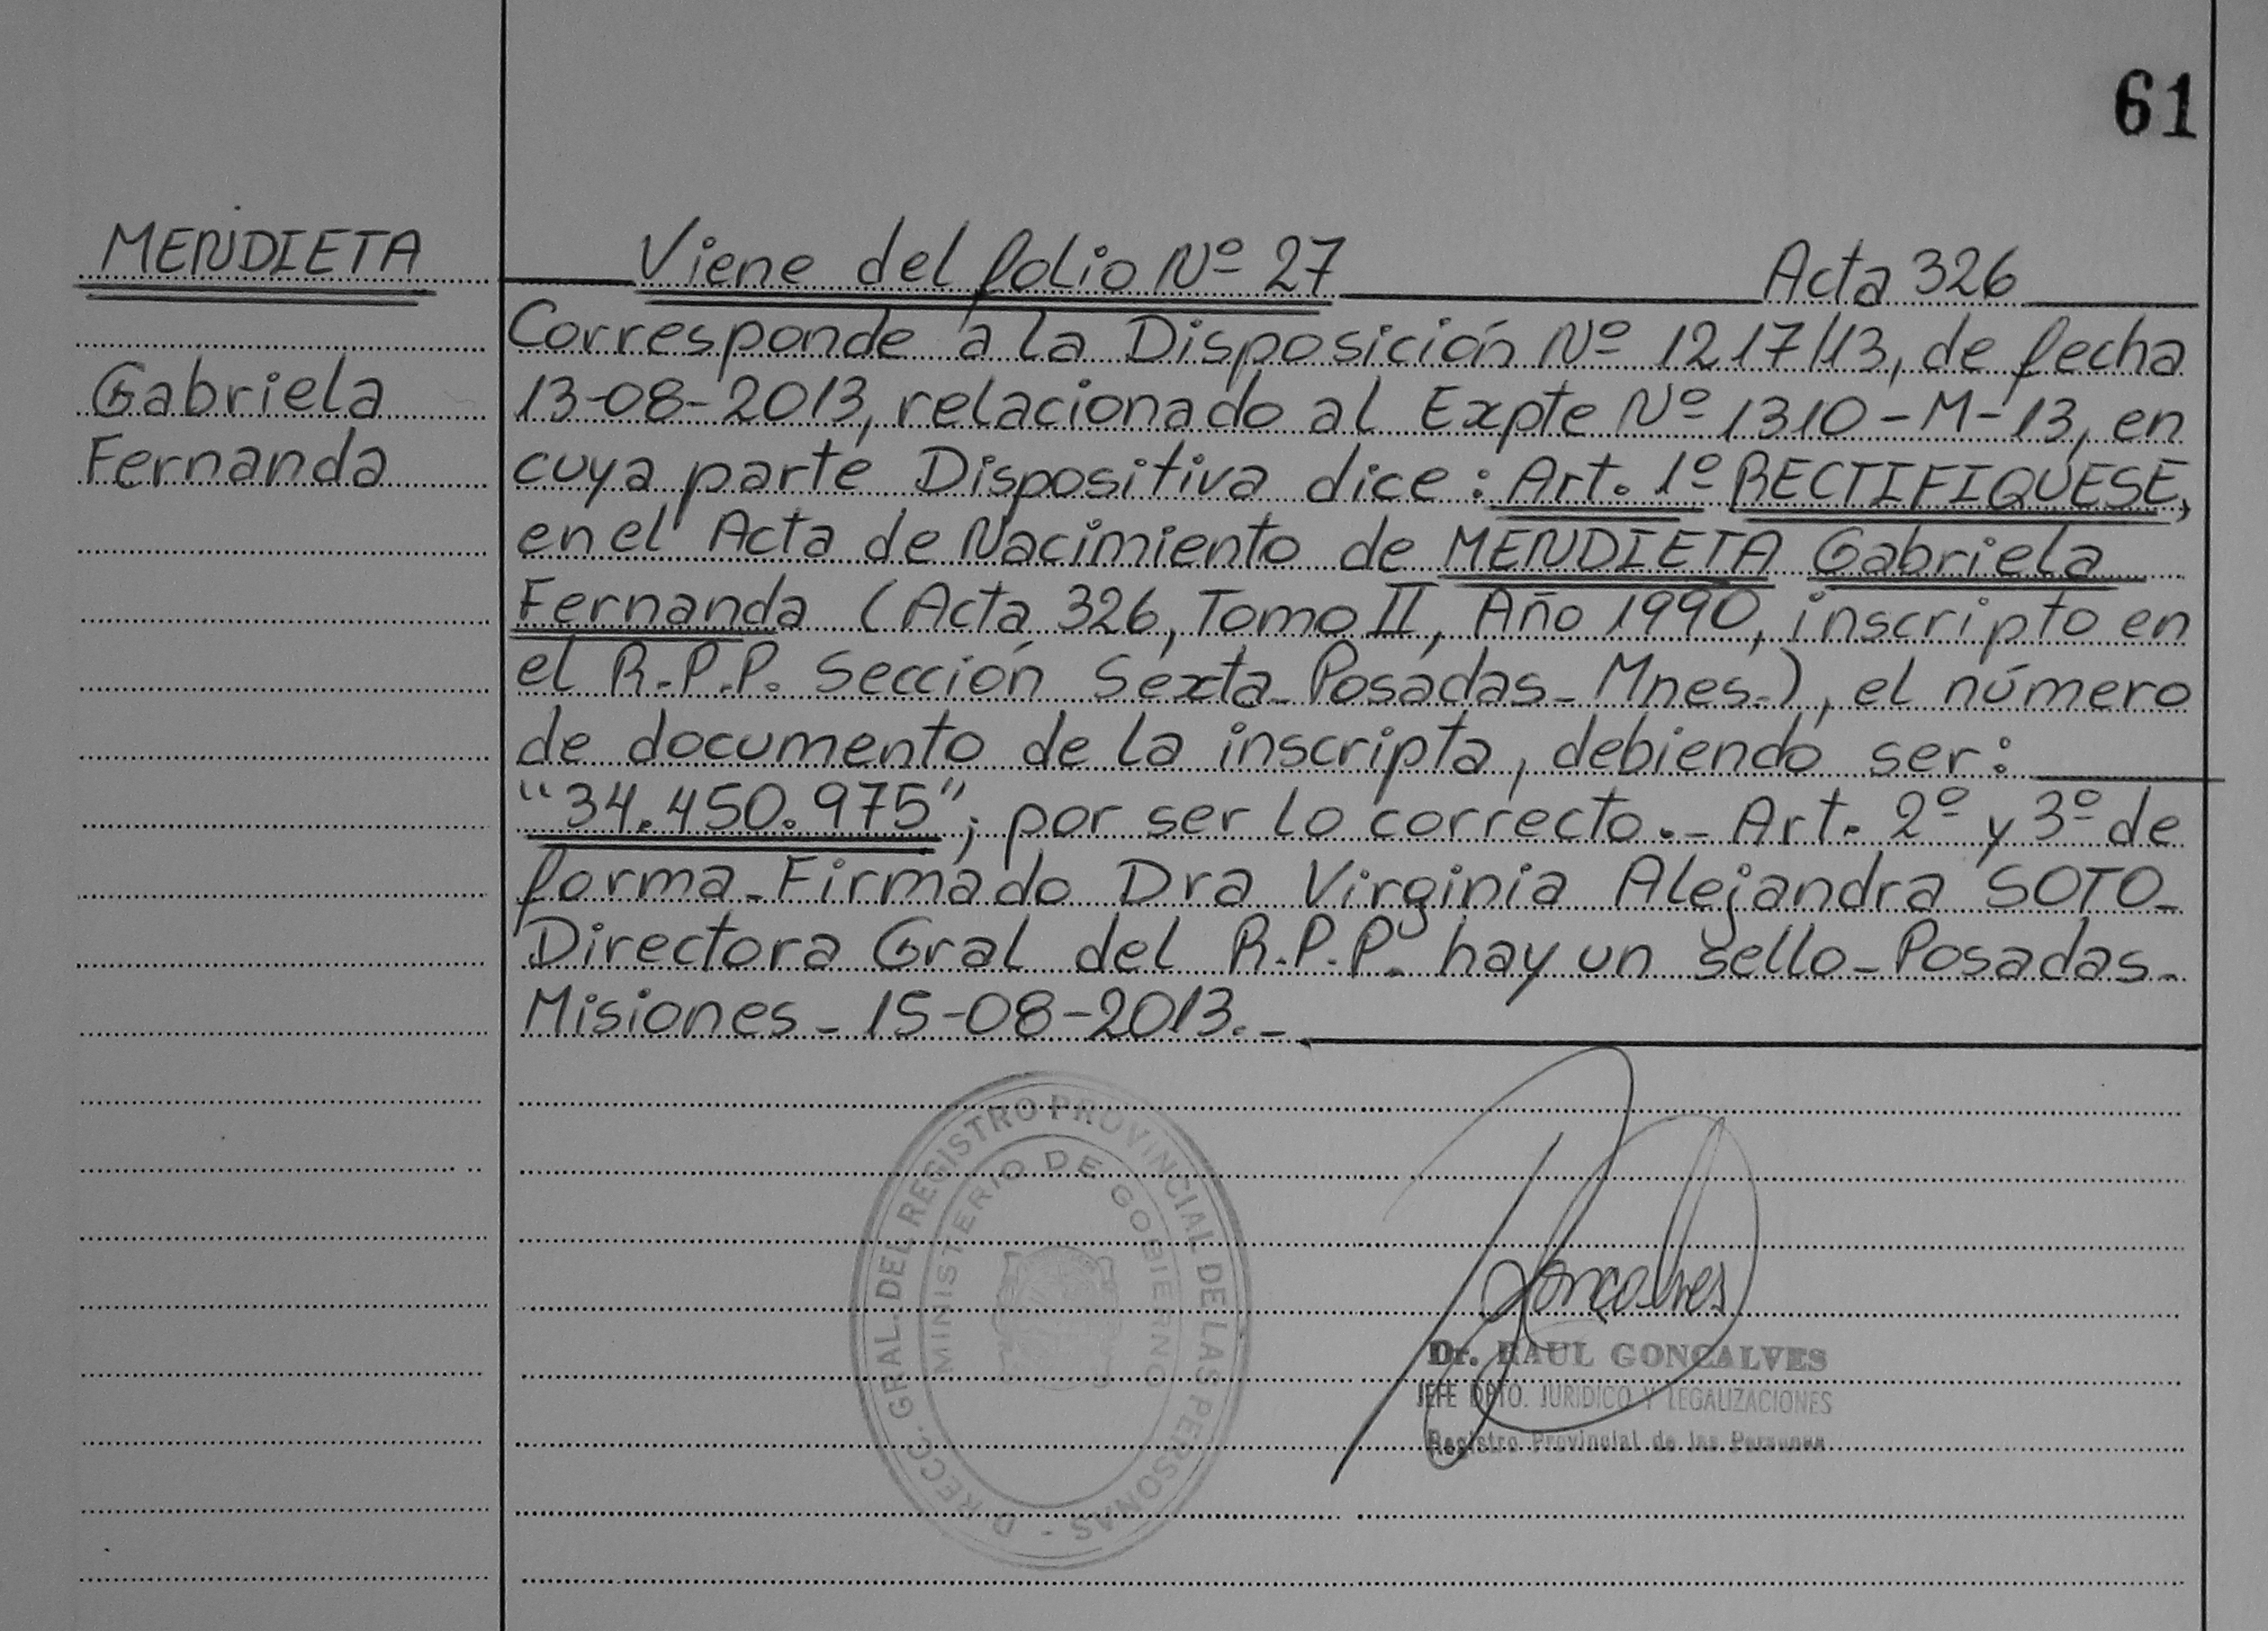 61
MENDIETA
Gabriela
Fernanda
Viene del folio Nº 27 Acta 326
Corresponde a la Disposición Nº 1217/13, de fecha
13-08-2013, relacionado al Expte Nº 1310-M-13, en
cuya parte Dispositiva dice: Art. 1º RECTIFIQUESE,
en el Acta de Nacimiento de MENDIETA Gabriela
Fernanda (Acta 326, Tomo II, Año 1990, inscripto en
el R.P.P. Sección Sexta-Posadas-Mnes.), el número
de documento de la inscripta, debiendo ser:
"34.450.975"; por ser lo correcto.- Art. 2º y 3º de
forma-Firmado Dra Virginia Alejandra SOTO-
Directora Gral del R.P.P. hay un sello-Posadas-
Misiones-15-08-2013.-
DIRECC. GRAL. DEL REGISTRO PROVINCIAL DE LAS PERSONAS -
MINISTERIO DE GOBIERNO
Goncalves
Dr. RAUL GONCALVES
JEFE DPTO. JURIDICO Y LEGALIZACIONES
Registro Provincial de las Personas